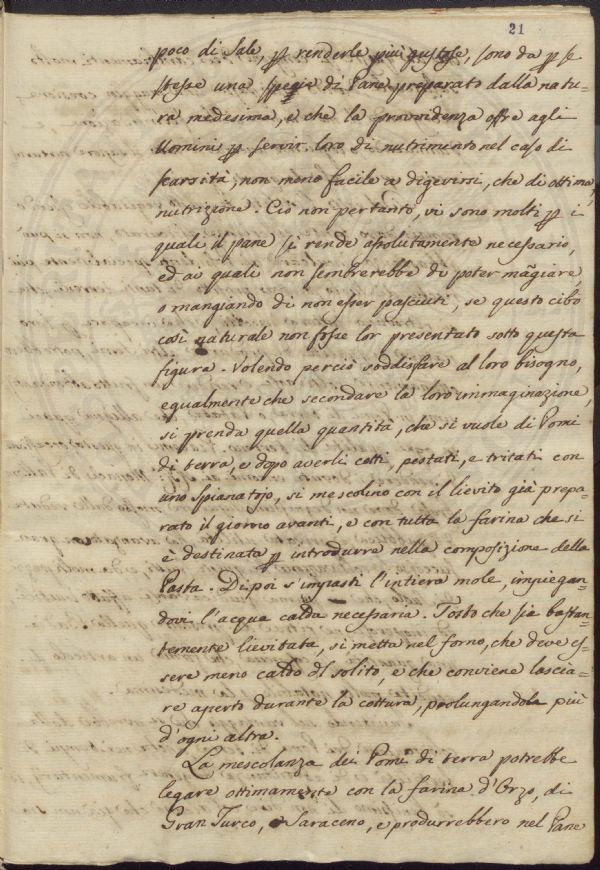 21
poco di Sale, ꝑ renderle più gustose, sono da ꝑ se
stesse una specie di Pane preparato dalla natu-
ra medesima, e che la provvidenza offre agli
Uomini ꝑ servir loro di nutrimento nel caso di
scarsità, non meno facile a digerirsi, che di ottima
nutrizione. Ciò non pertanto, vi sono molti ꝑ i
quali il pane si rende assolutamente necessario,
ed ai quali non sembrerebbe di poter mãgiare,
o mangiando di non esser pasciuti, se questo cibo
così naturale non fosse lor presentato sotto questa
figura. Volendo perciò soddisfare al loro bisogno,
egualmente che secondare la loro immaginazione,
si prenda quella quantità, che si vuole di Pomi
di terra, e dopo averli cotti, pestati, e tritati con
uno spianatojo, si mescolino con il lievito già prepa-
rato il giorno avanti, e con tutta la farina che si
è destinata ꝑ introdurre nella composizione della
Pasta. Dipoi s'impasti l'intiera mole, impiegan-
dovi l'acqua calda necessaria. Tosto che sia bastan-
temente lievitata, si metta nel forno, che deve es-
sere meno caldo dl solito, e che conviene lascia-
re aperto durante la cottura, prolungandola più
d'ogni altra.
La mescolanza dei Pomi di terra potrebbe
legare ottimamente con la farina d'Orzo, di
Gran Turco, o Saraceno, e produrrebbero nel Pane